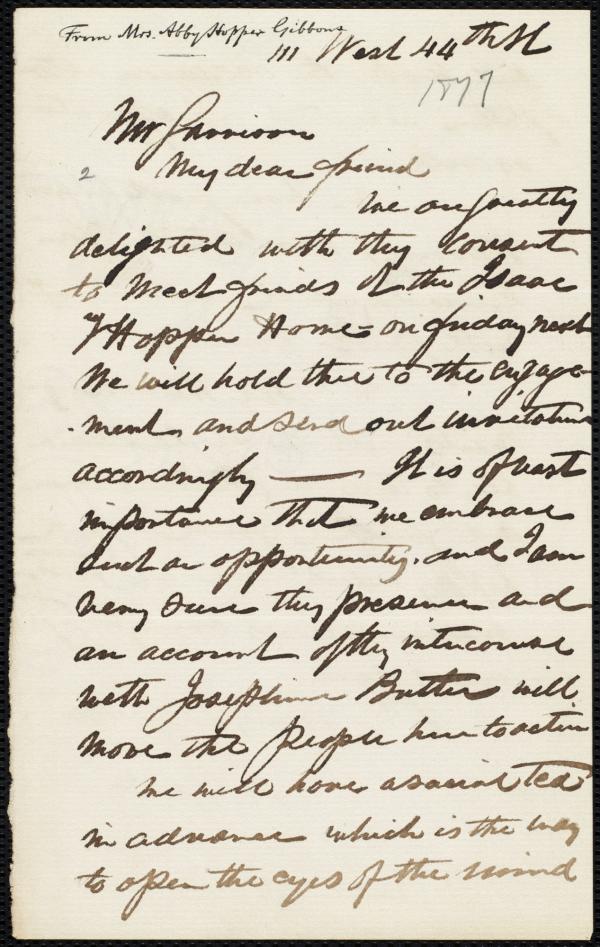 From Mrs. Abby Hopper Gibbons
111 West 44th St
1877
Mr Garrison
2
My dear friend
We are greatly
delighted with thy consent
to meet friends of the Isaac
T Hopper Home - on friday next
We will hold thee to the engage-
-ment, and send out invitations
accordingly — It is of vast
importance that we embrace
such an opportunity, and I am
very sure thy presence and
an account of thy intercourse
with Josephine Butler will
move the people here to action
We will have a social Tea
in advance which is the way
to open the eyes of the mind